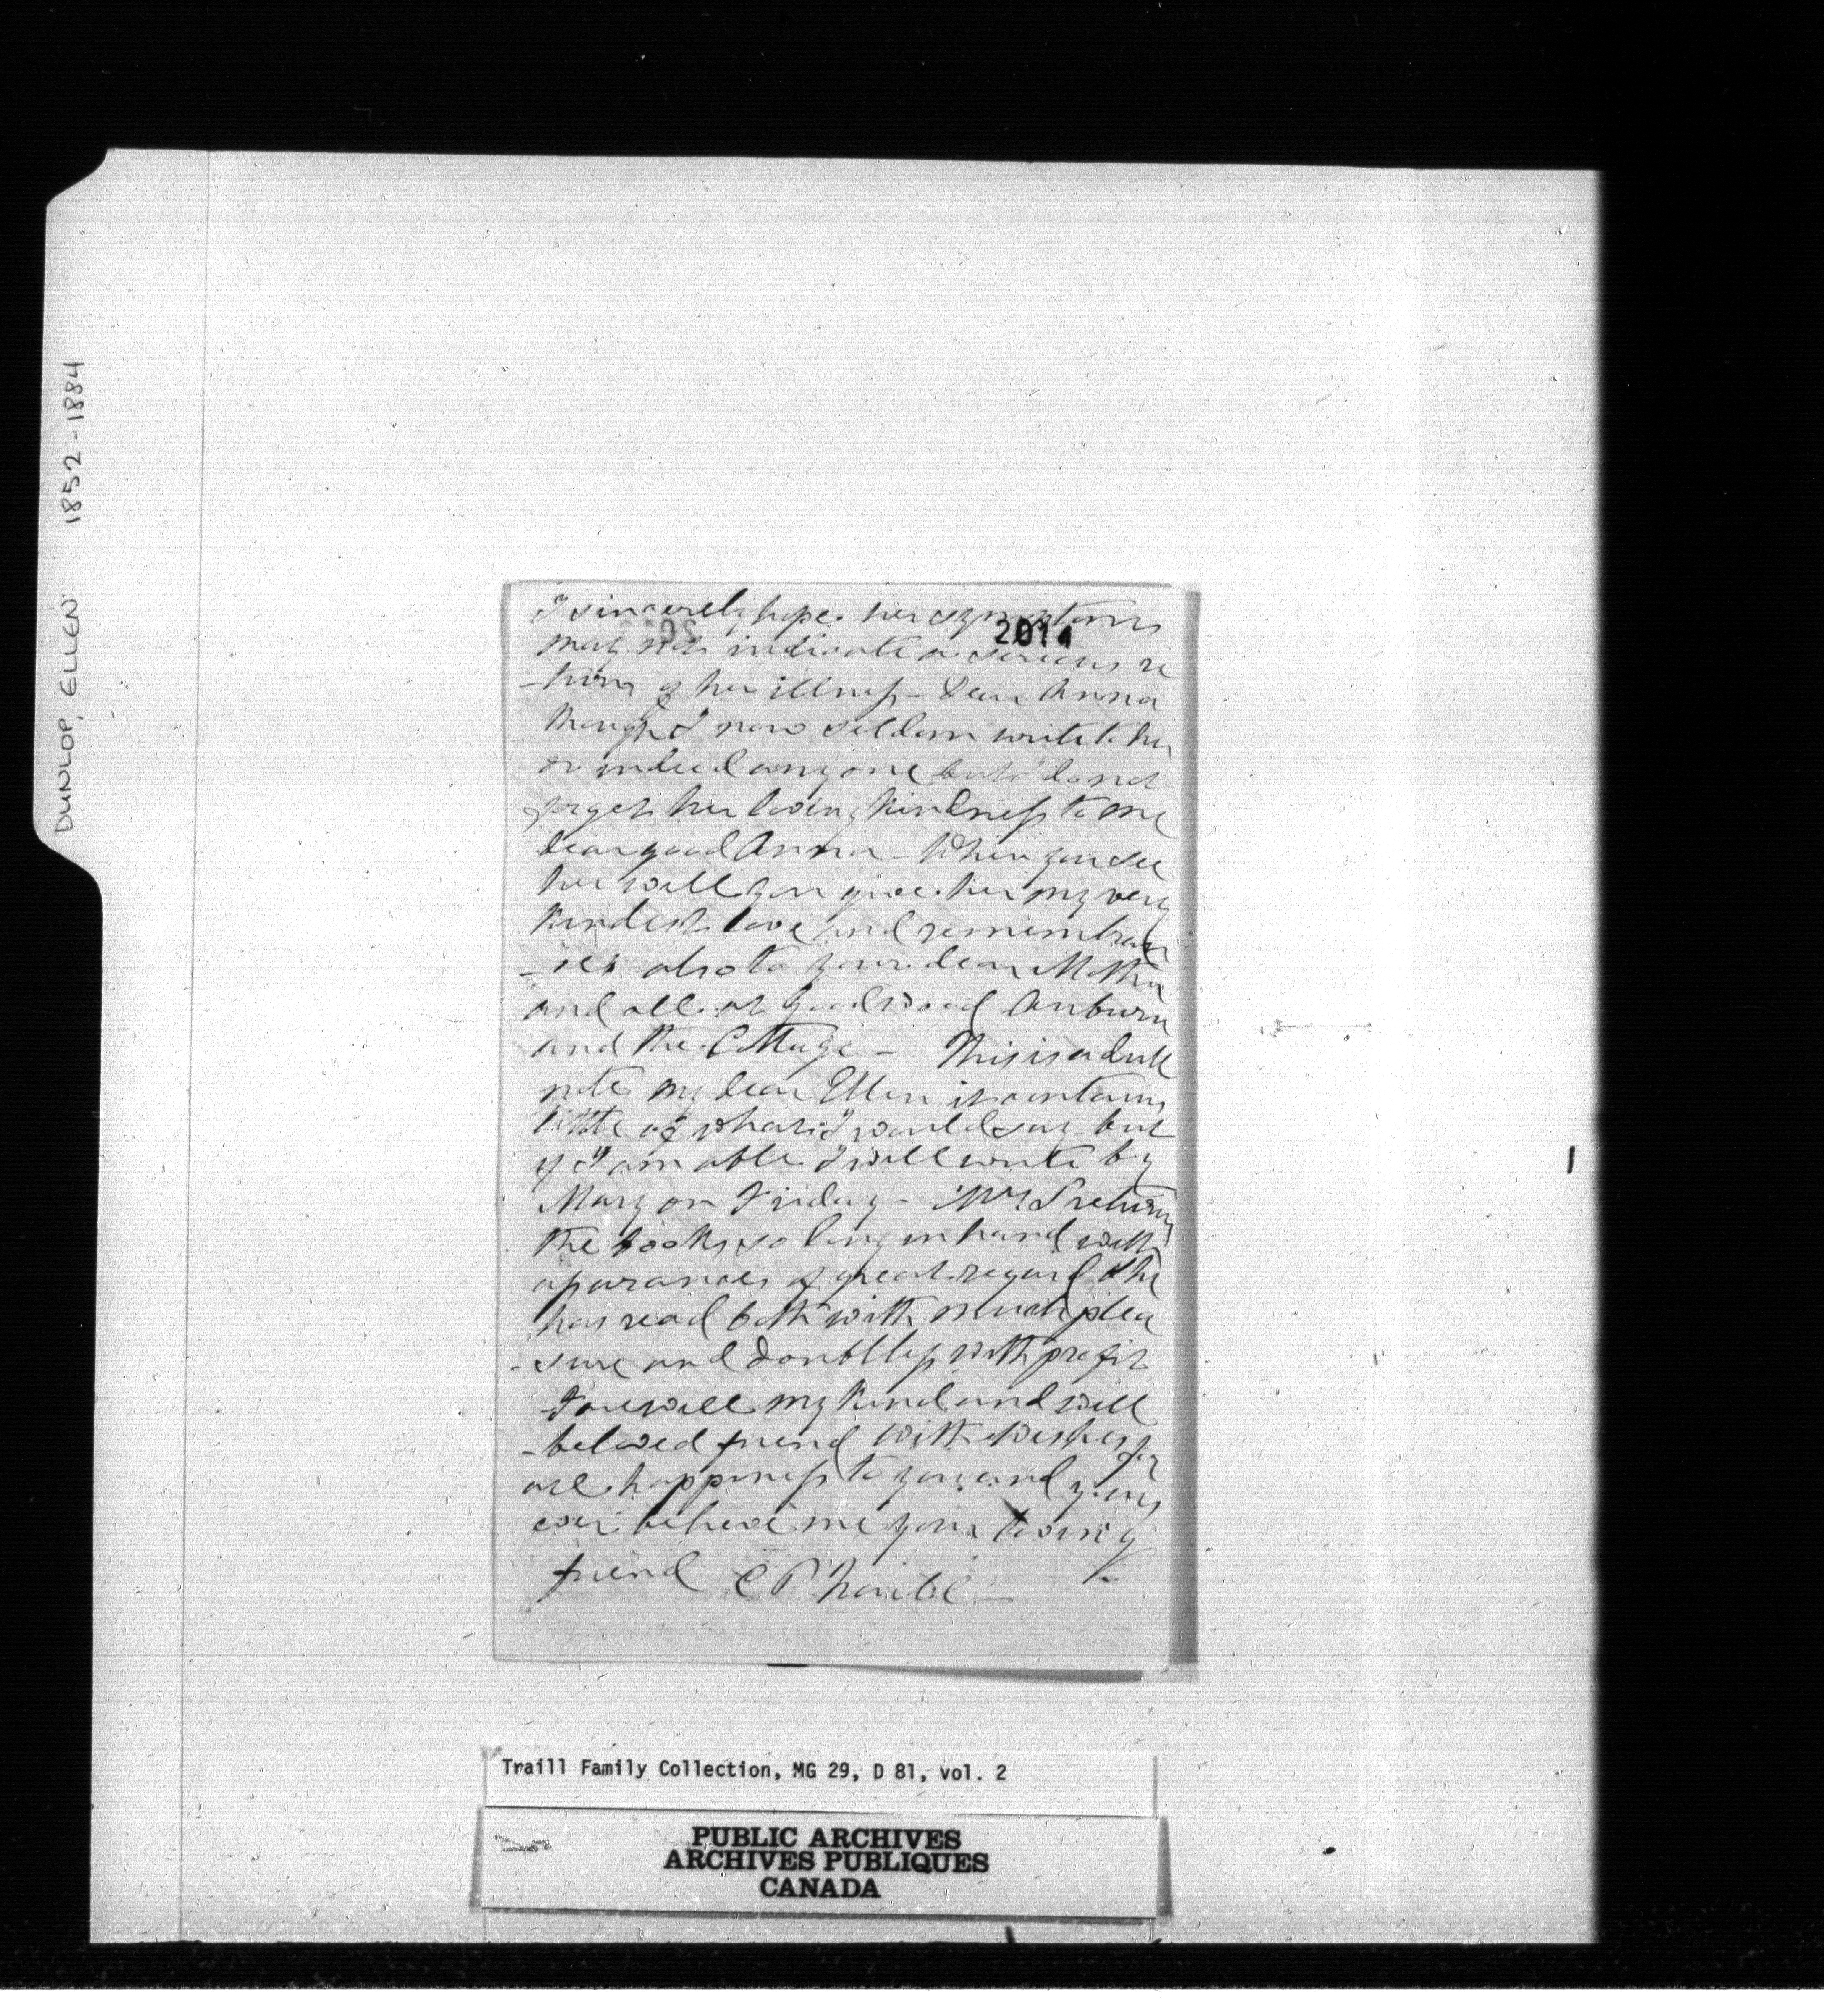 DUNLOP, ELLEN 1852-1884
I sincerely hope her symptoms
2014
may not indicate a serious re
-turn of her illness - Dear Anna
though I now seldom write to her
or indeed any one but I do not
forget her loving kindness to me
dear good Anna - When you see
her will you give her my very
kindest love and remembran
-ces also to your dear Mother
and all at Goodwood Auburn
and the Cottage - This is a dull
note my dear Ellen it contains
little of what I would say but
if I am able I will write by
Mary on Friday - Mrs S returns
the books so long in hand with
apurances of great regard She
has read both with much plea
-sure and doubtless with profit
Farewell my kind and well
-beloved friend With wishes for
all happiness to you and yours
ever believe me your loving
friend C P Traill -
Traill Family Collection, MG 29, D 81, vol. 2
PUBLIC ARCHIVES
ARCHIVES PUBLIQUES
CANADA